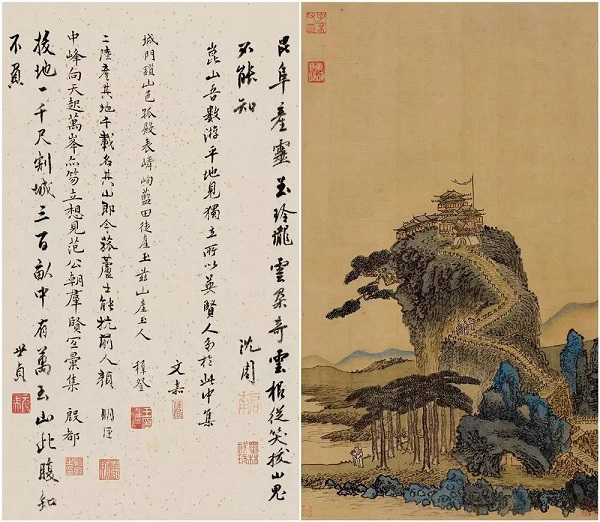 昆阜產靈玉玲瓏雲朵奇雲根從笑拔山鬼
不能知 沈周
崑山吾數游平地見獨立所以英賢人多於此中集
文嘉
城門鎖山色孤殿表嶙峋藍田徒產玉茲山產玉人 穉登
二陸產其地千載名其山即今菰蘆士能抗前人顏 明臣
中峰向天起萬峯亦笏立想見范公朝羣賢宜彙集 殷都
拔地一千尺割城三百畝中有萬玉山此腹知
不負 世貞